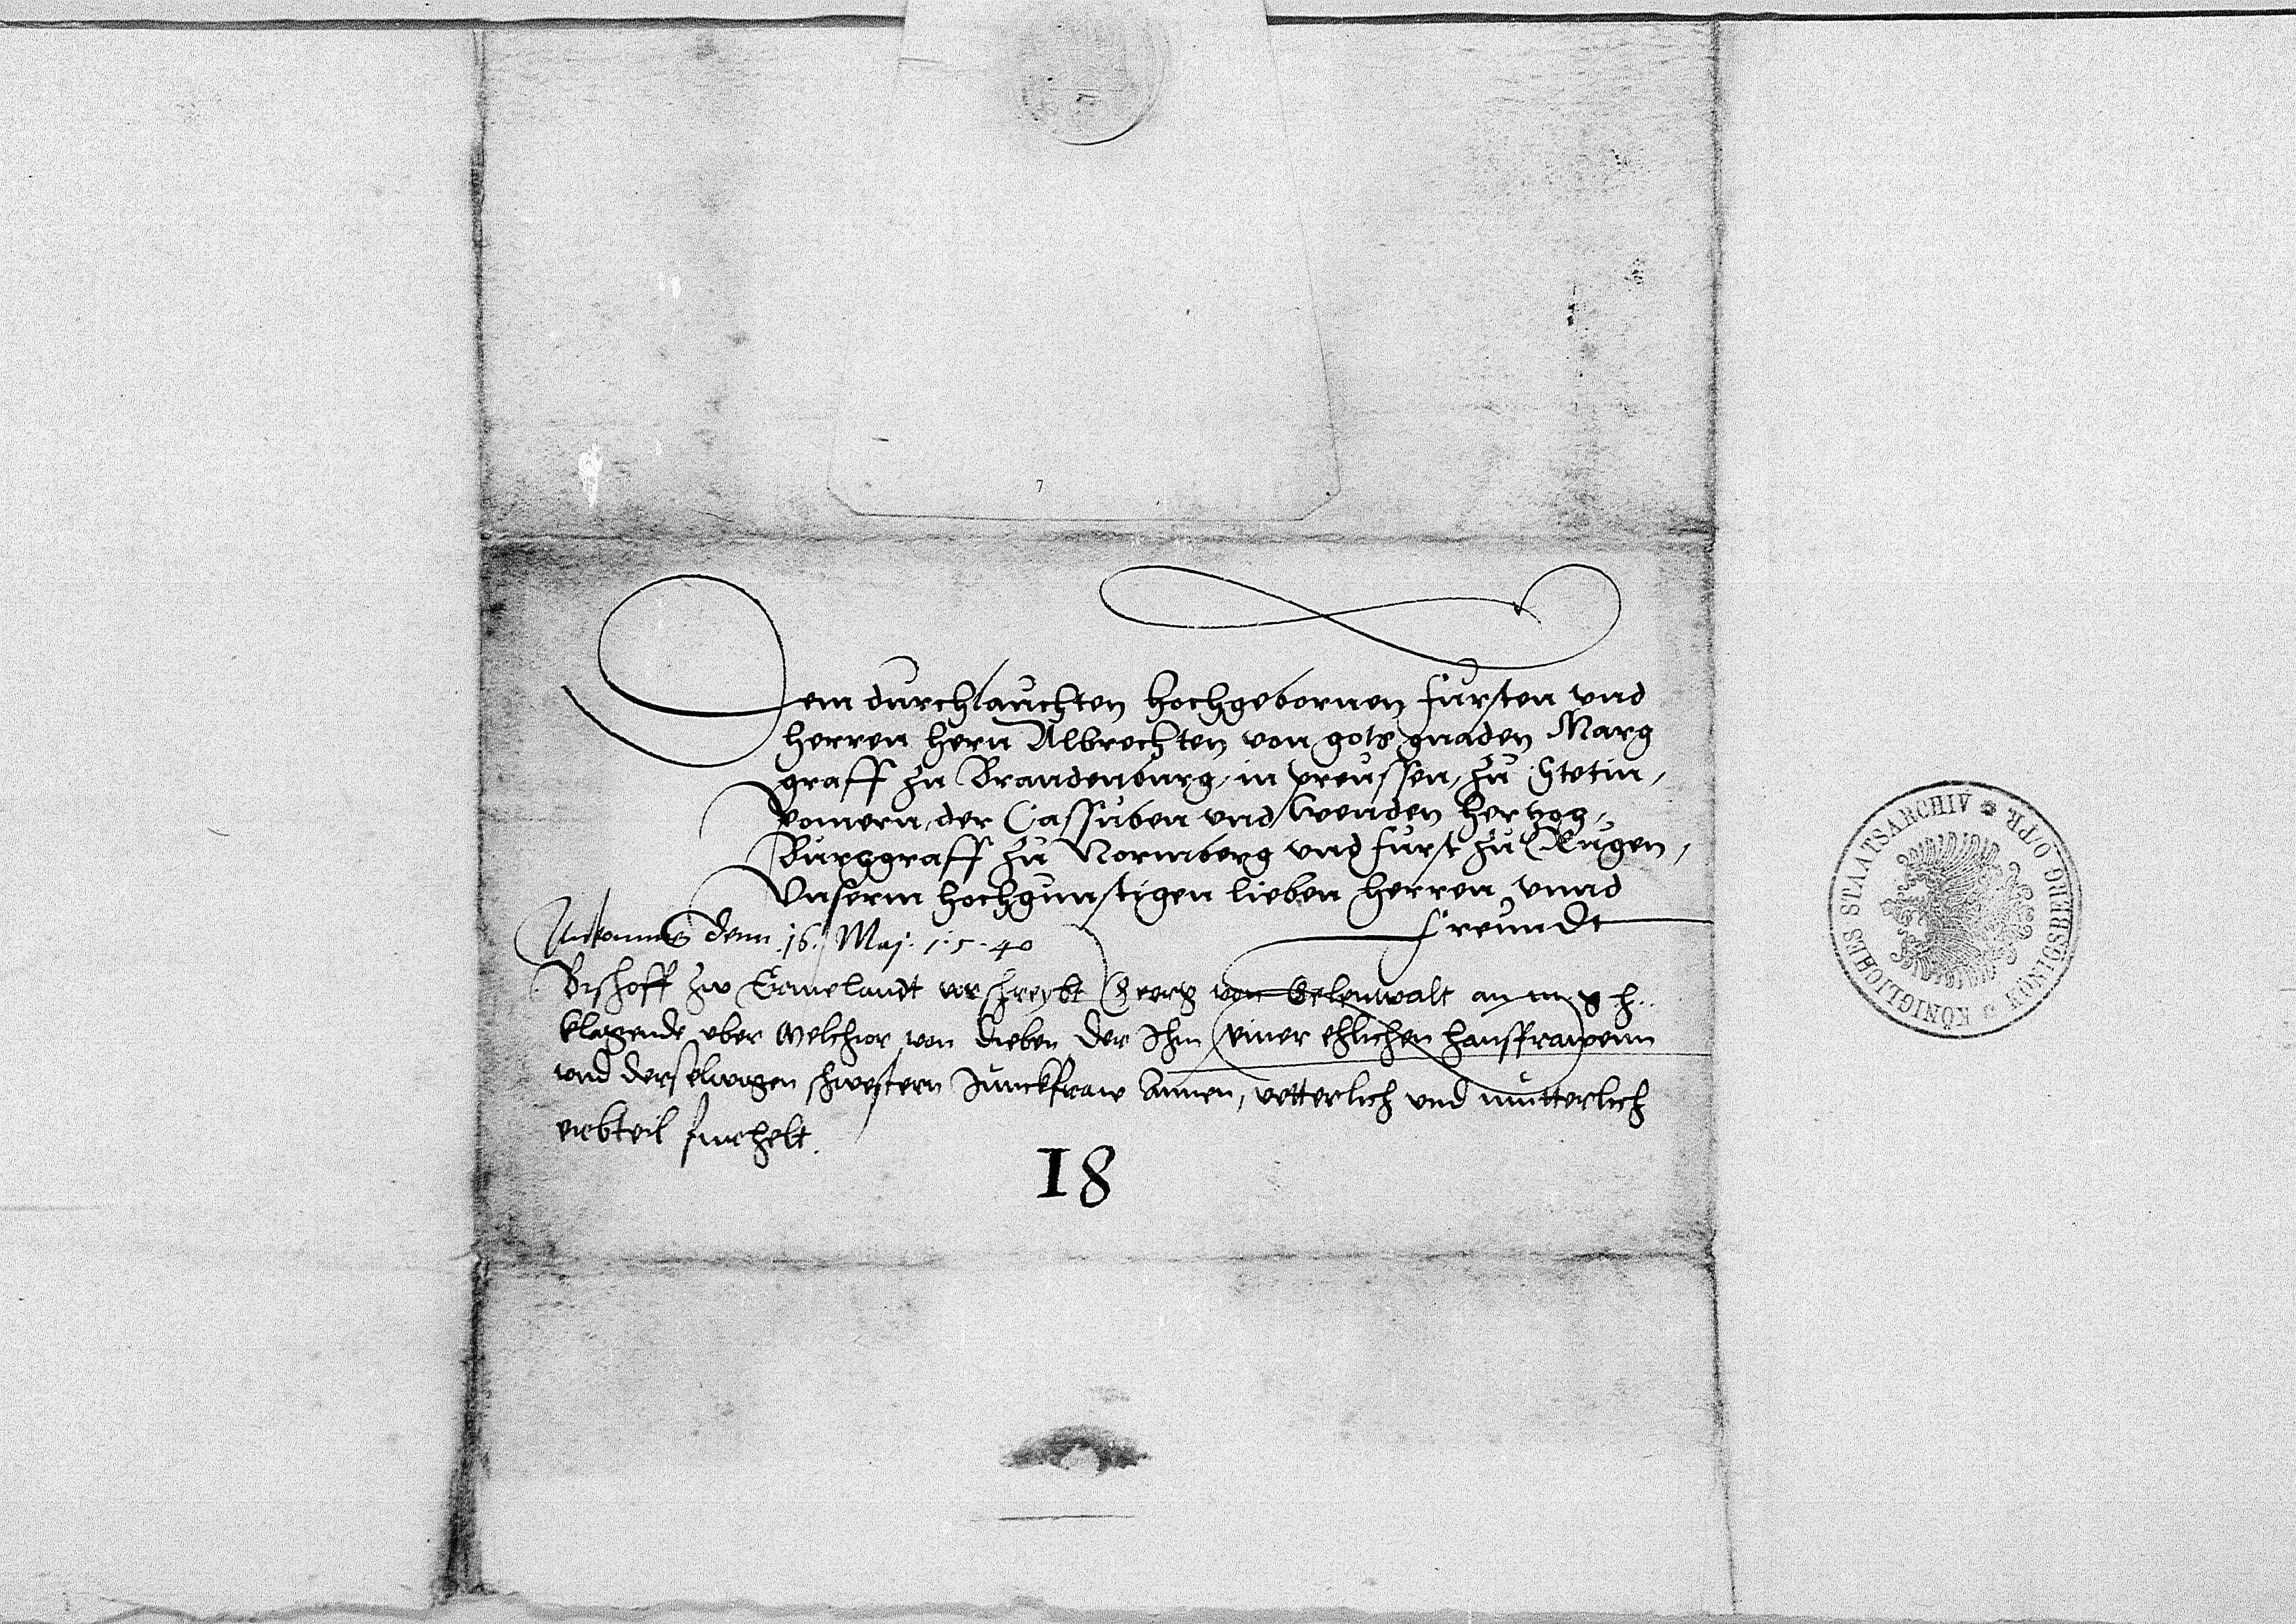 Dem durchlauchten hochgebornen fursten vnd
herren hern Albrechten von gots gnaden Marg
graff zu Brandenburg, in preussen, zu Stetin,
pomern, der Cassuben vnd wenden hertzog,
Burggraff zu Nornberg vnd furst zu Rugen,
Vnserm hochgunstigen lieben herren vnnd
freundt
denn 16. Maj. 1.5.40
Bischoff zw Ermelandt vorschreybt Georg von an m g h.
klagende vber Melchior von Dieben der Ihm einer ehlichen hausfrawenn
vnd derselwigen schwestern Junckfraw Annen, vetterlich vnd mutterlich
erbteil furhelt.
18
KÖNIGLICHES STAATSARCHIV * KÖNIGSBERG O/PR. *